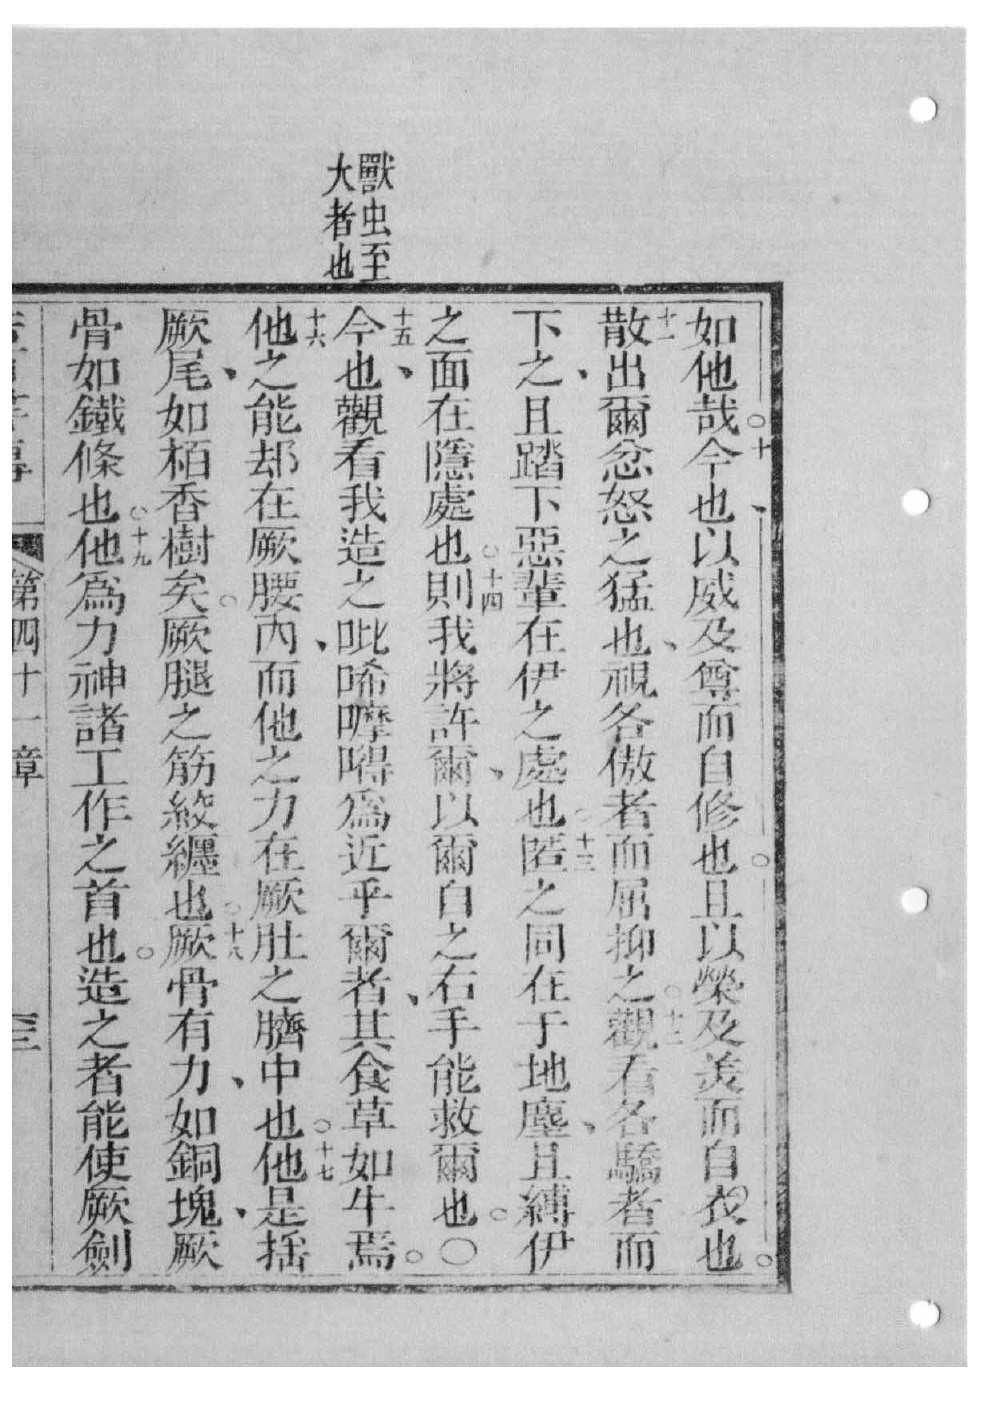 獸虫至
大者也
如他哉。十今也、以威及尊而自修也。且以榮及羙而自衣也。
十一散出爾忿怒之猛也、視各傲者而屈抑之。十二觀看各驕者而
下之、且踏下惡輩在伊之處也。十三匿之同在于地塵、且縛伊
之面在隱處也。十四則我將許爾、以爾自之右手能救爾也。〇
十五今也、觀看我造之吡唏嚤㖼為近乎爾者、其食草如牛焉。
十六他之能却在厥腰內、而他之力在厥肚之臍中也。十七他是揺
厥尾、如栢香樹矣。厥腿之筋絞纏也。十八厥骨有力、如銅塊、厥
骨如鐵條也。十九他為力神諸工作之首也。造之者能使厥劍
第四十一章